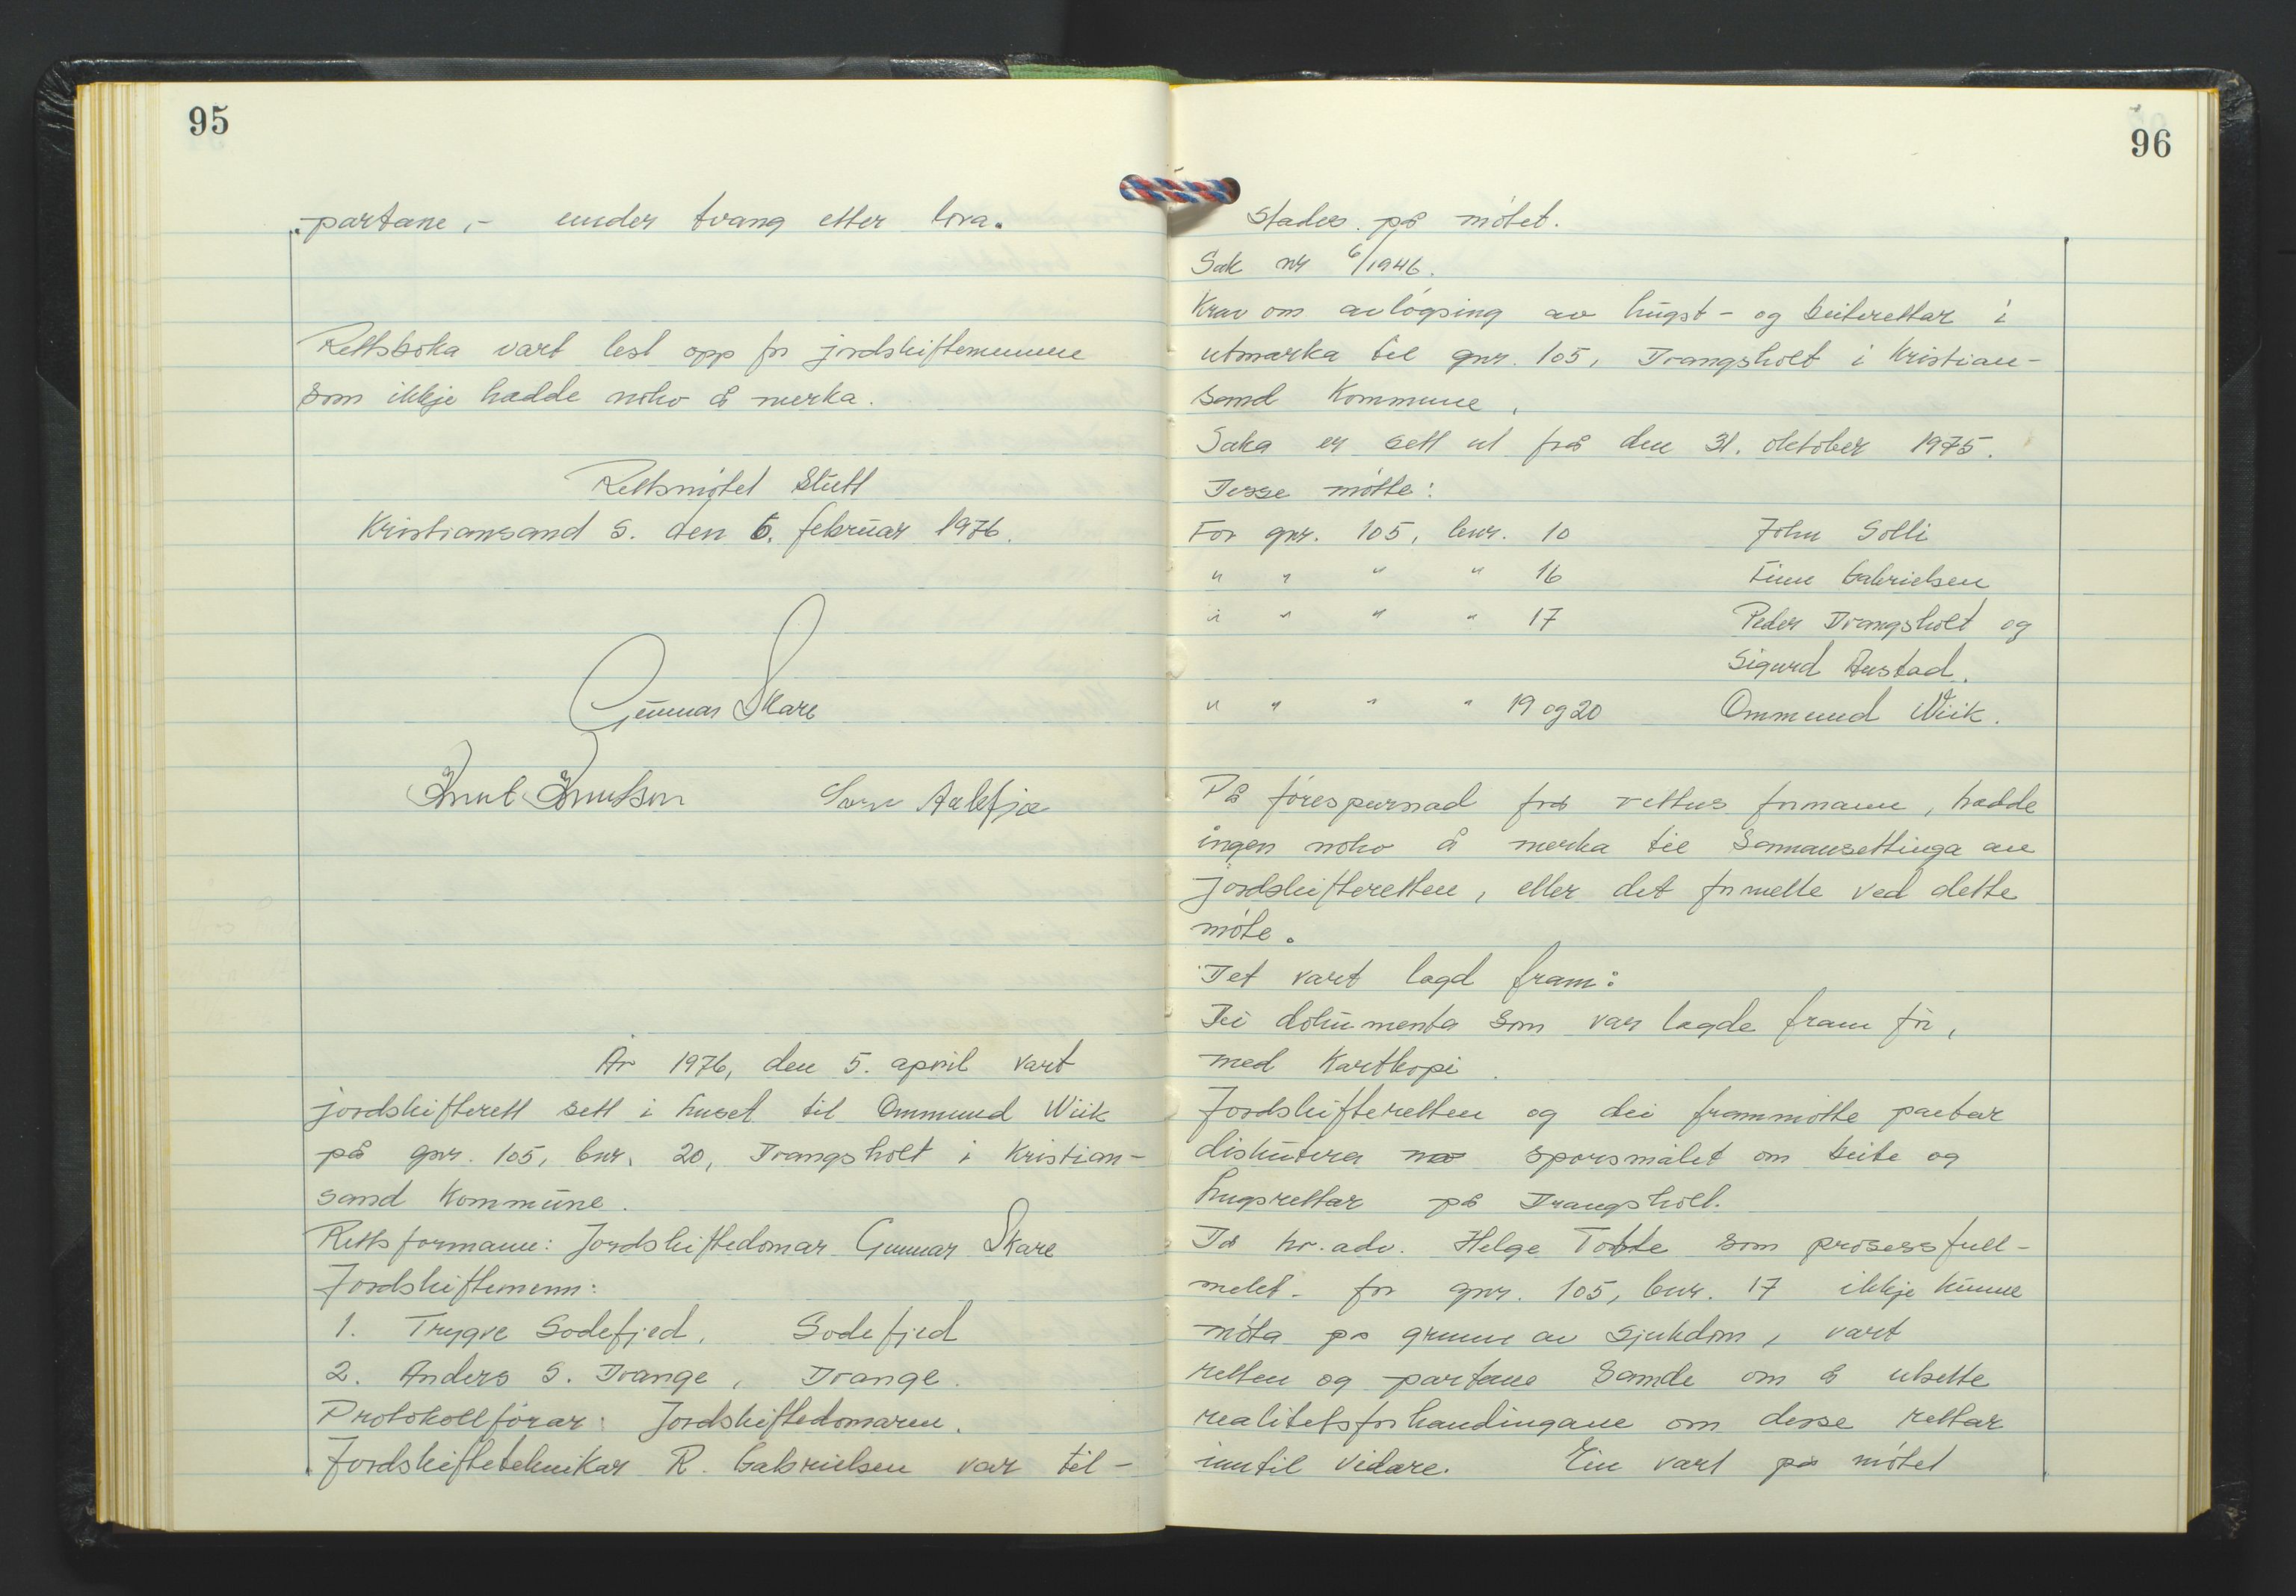 95
partane, - under tvang etter lova.
Rettsboka vart lest opp for jordskiftemennene
som ikkje hadde noko å merka.
Rettsmötet slutt
Kristiansand S. den 6. februar 1976.
Gunnar Skare
Knut Knutson
År 1976, den 5. april vart
jordskifterett sett i huset til Ommund Wiik
på gnr. 105, bnr. 20, Drangsholt i Kristian-
sand Kommune.
Rettsformann: Jordskiftedomar Gunnar Skare
Jordskiftemenn:
1. Trygve Sodefjed, Sodefjed
2. Anders S. Drange, Drange.
Protokollförar: Jordskiftedomaren.
Jordskifteteknikar R. Gabrielsen var til-
96
stades på mötet.
Sak nr 6/1946.
Krav om avlöysing av hugst- og beiterettar i
utmarka til gnr. 105, Drangsholt i Kristian-
sand Kommune,
Saka er sett ut frå den 31. oktober 1975.
Desse mötte:
For gnr. 105, bnr. 10 John Solli
" " " " 16 Finn Gabrielsen
" " " " 17 Peder Drangsholt og
Sigurd Austad.
" " " " 19 og 20 Ommund Wiik.
På förespurnad frå rettens formann, hadde
ingen noko å merka til samansettinga av
jordskifteretten, eller det formelle ved dette
möte.
Det vart lagd fram:
Dei dokumenta som var lagde fram för,
med Kartkopi.
Jordskifteretten og dei frammötte partar
diskutera spörsmålet om beite og
hugsrettar på Drangsholt.
Då hr. adv. Helge Tobte som prosessfull-
mekt. for gnr. 105, bnr. 17 ikkje kunne
möta på grunn av sjukdom, vart
retten og partane samde om å utsette
realitetsforhandingane om desse rettar
inntil vidare. Ein vart på mötet